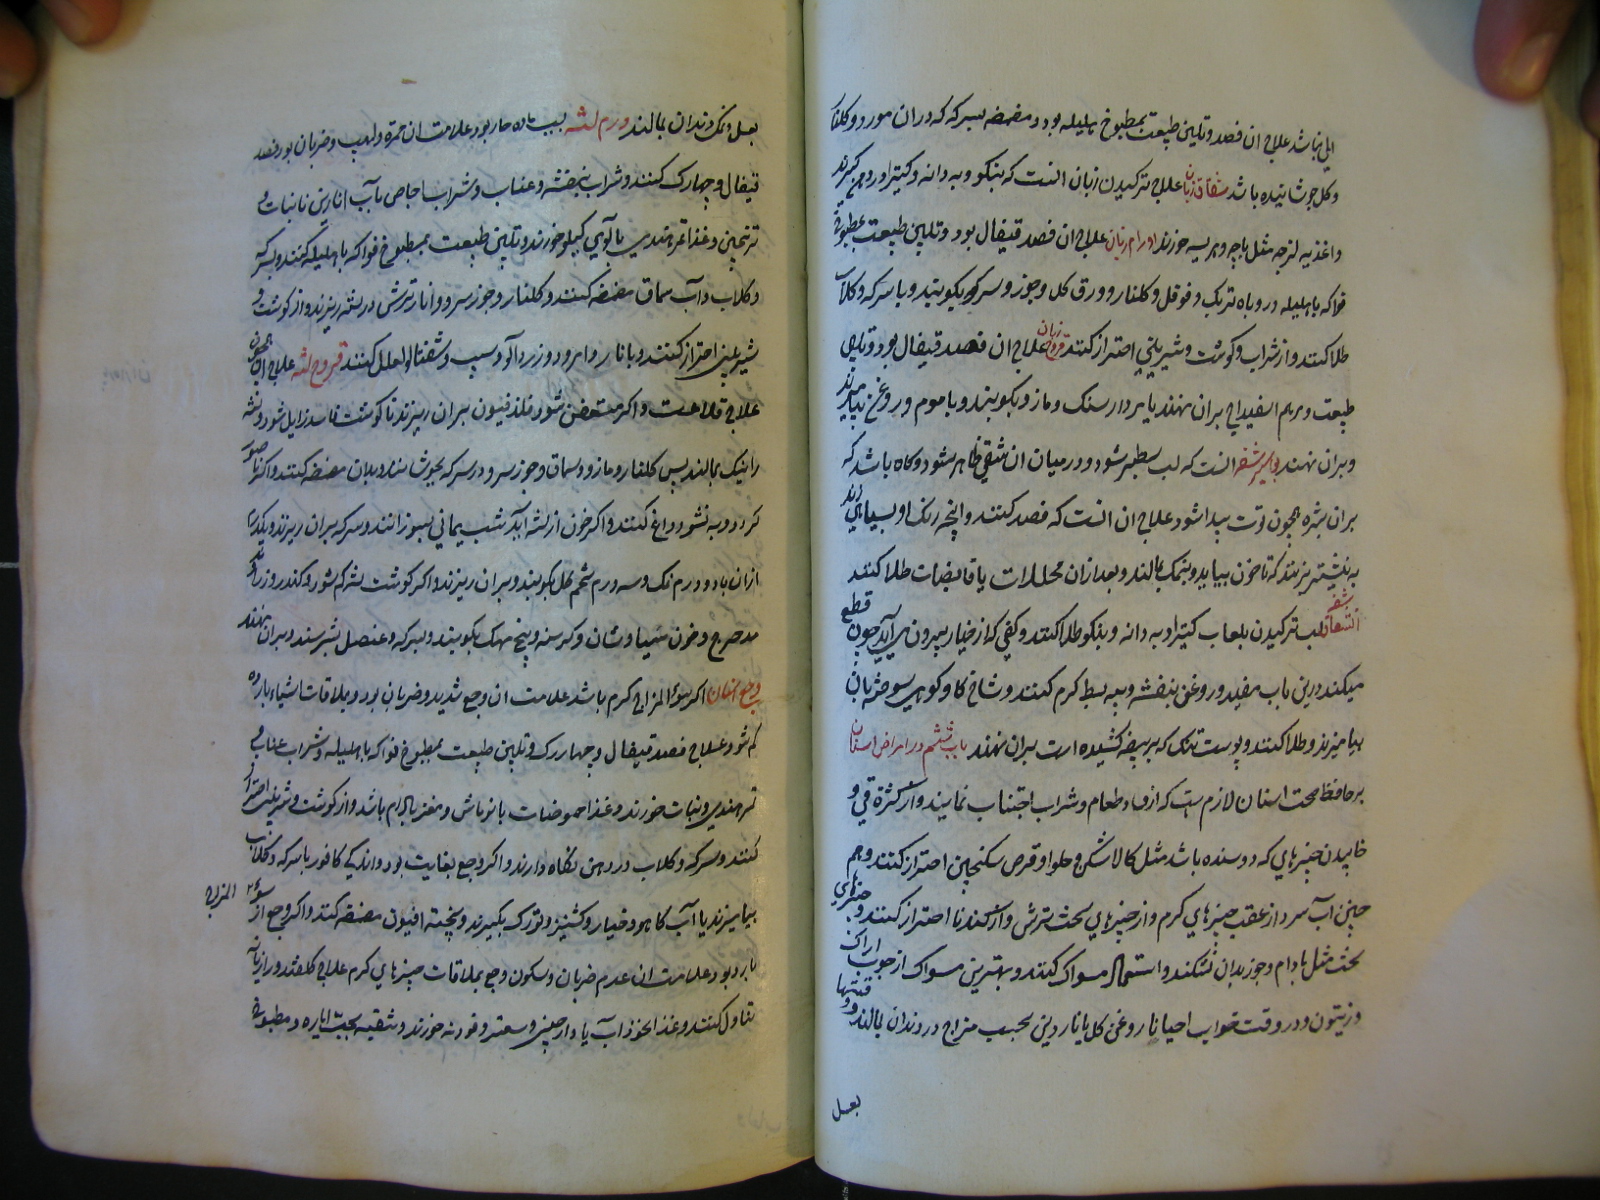 باشد علاج ان فصد و تلین طبیعت بمطبوخ هلیله بود و مضمضه بسرکه که در ان مورد و کلنار
و کل جوشانیده باشد شقاق زبان علاج ترکیدن زبان انست که بنکو و به دانه و کتیرا در دهن کیرند
و اغذیه لزجه مثل پاچه و هریسه خورند اورام زبان علاج ان فصد قیفال بود و تلین طبیعت بمطبوخ
فواکه یا هلیله و روباه تربک و فوفل و کلنار و ورق کل و جوز و سرو بکوبند و با سرکه و کلاب
طلا کنند و از شراب و کوشت و شیرینی احتراز کنند قروح زبان علاج ان فصد قیفال بود و تلین
طبیعت و مرهم اسفیداج بران نهند یا مردار سنک و مازو بکوبند و با موم و روغن بیامیزند
و بران نهند بواسیر شفه انست که لب سطبر شود و در میان ان شقی ظاهر شود و کاه باشد که
بران بثره همچون توت پیدا شود علاج ان انست که فصد کنند و انچه رنک او بسیاهی زند
به نیشتر بزنند که تا خون بیاید و بنمک بمالند و بعد ازان محللات یا قابضات طلا کنند
انشقاق شفه لب ترکیدن بلعاب کتیرا و به دانه و بنکو طلا کنند و کفی که از خیار بیرون می آید چون قطع
میکنند درین باب مفید و روغن بنفشه و پیه بط کرم کنند و شاخ کاو کوهی سوخته بان
بیامیزند و طلا کنند و پوست تنک که بر بیضه کشیده است بران نهند باب ششم در امراض اسنان
بر حافظ صحت اسنان لازم است که از فساد طعام و شراب اجتناب نمایند و از کثرة قی و
خاییدن چیزهایی که دوسنده باشد مثل کالاشکن و حلوا و قرص سکنجبین احتراز کنند و هم
چنین اب سرد از عقب چیزهای کرم و از چیزهای سخت ترش و از کندنا احتراز کنند و چیزهای
سخت مثل بادام و جوز بدان نشکنند و استعمال مسواک کنند و بهترین مسواک از چوب اراک
و زیتون و در وقت خواب احیانا روغن کل یا ناردین بحسب مزاج در دندان بمالند و وقتها
بعسل
بعسل و نمک دندان بمالند ورم لثه بسبب ماده حار بود علامت ان حمرة و لهیب و ضربان بود فصد
قیفال و چهار رک کنند و شراب بنفشه و عناب و شراب اجاص بآب انارین با نبات و
ترنجبین و غذا تمرهندی یا آلوی کیلو خورند و تلین طبیعت بمطبوخ فواکه با هلیله کنند و بسرکه
و کلاب و آب سماق مضمضه کنند و کلنار و جوز سرو و انار ترش در لثه ریزند و از کوشت و
شیرینی احتراز کنند و بانار و امرود و زردآلو و سیب و شفتالو تعلل کنند قروح لثه علاج ان همچون
علاج قلاعست و اکر متعفن شود فلدفیون بران ریزند تا کوشت فاسد زایل شود و لثه
را نیک بمالند پس کلنار و مازو و سماق و جوز سرو در سرکه بجوشانند و بدان مضمضه کنند و اکر ناصور
کردد و به نشود داغ کنند و اکر خون از لثه آید شب یمانی بسوزانند و سرکه بران ریزند و یکدرم
ازان با دو درم نمک و سه درم شحم حنظل بکوبند و بران ریزند و اکر کوشت لثه کم شود کندر و زراوند
مدحرج و خون سیاوشان و کرسنه و بیخ مهک بکوبند و بسرکه و عنصل بسرشند و بران نهند
وجع اسنان اکر سوء المزاج کرم باشد علامت ان وجع شدید و ضربان بود و بملاقات اشیاء بارده
کم شود علاج فصد قیفال و چهار رک و تلین طبیعت بمطبوخ فواکه با هلیله و شراب عناب و
تمرهندی و نبات خورند و غذا حموضات بانو ماش و مغز بادام باشد و از کوشت و شیرینی احتراز
کنند و سرکه و کلاب در دهن نکاه دارند و اکر وجع بغایت بود و اندکی کافور با سرکه و کلاب
بیامیزند یا آب کاهو و خیار و کشنیز و تورک بکیرند و پخته افیون مضمضه کنند و اکر وجع از سوء المزاج
بارد بود علامت ان عدم ضربان و سکون وجع بملاقات چیزهای کرم علاج کلقند و رازیانه
تناول کنند و غذا نخود آب با دارچینی و سعتر و فودنه خورند و تنقیه بحب ایاره و مطبوخ